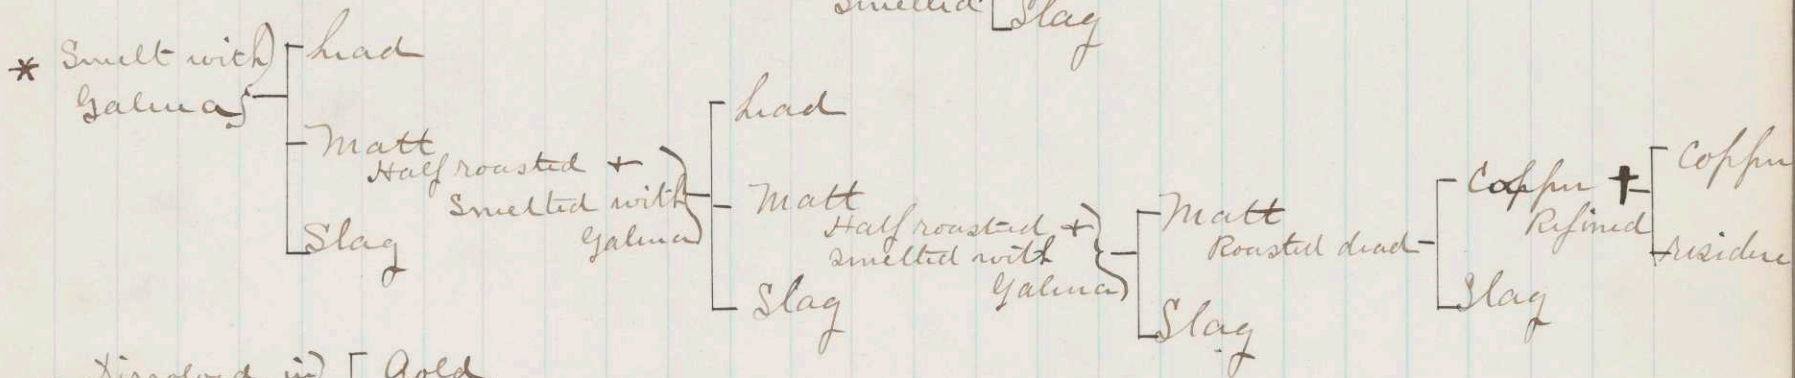 Smelted [Slag
* Smelt with) Lead
Galena}
Matt
Half roasted +
Smelted with
Galena)
Slag
Lead
Matt
Half roasted +
Smelted with
Galena)
Slag
Matt
Roasted dead
Slag
Copper +
Refined
Slag
Copper
residue
Dissolved in) [Gold